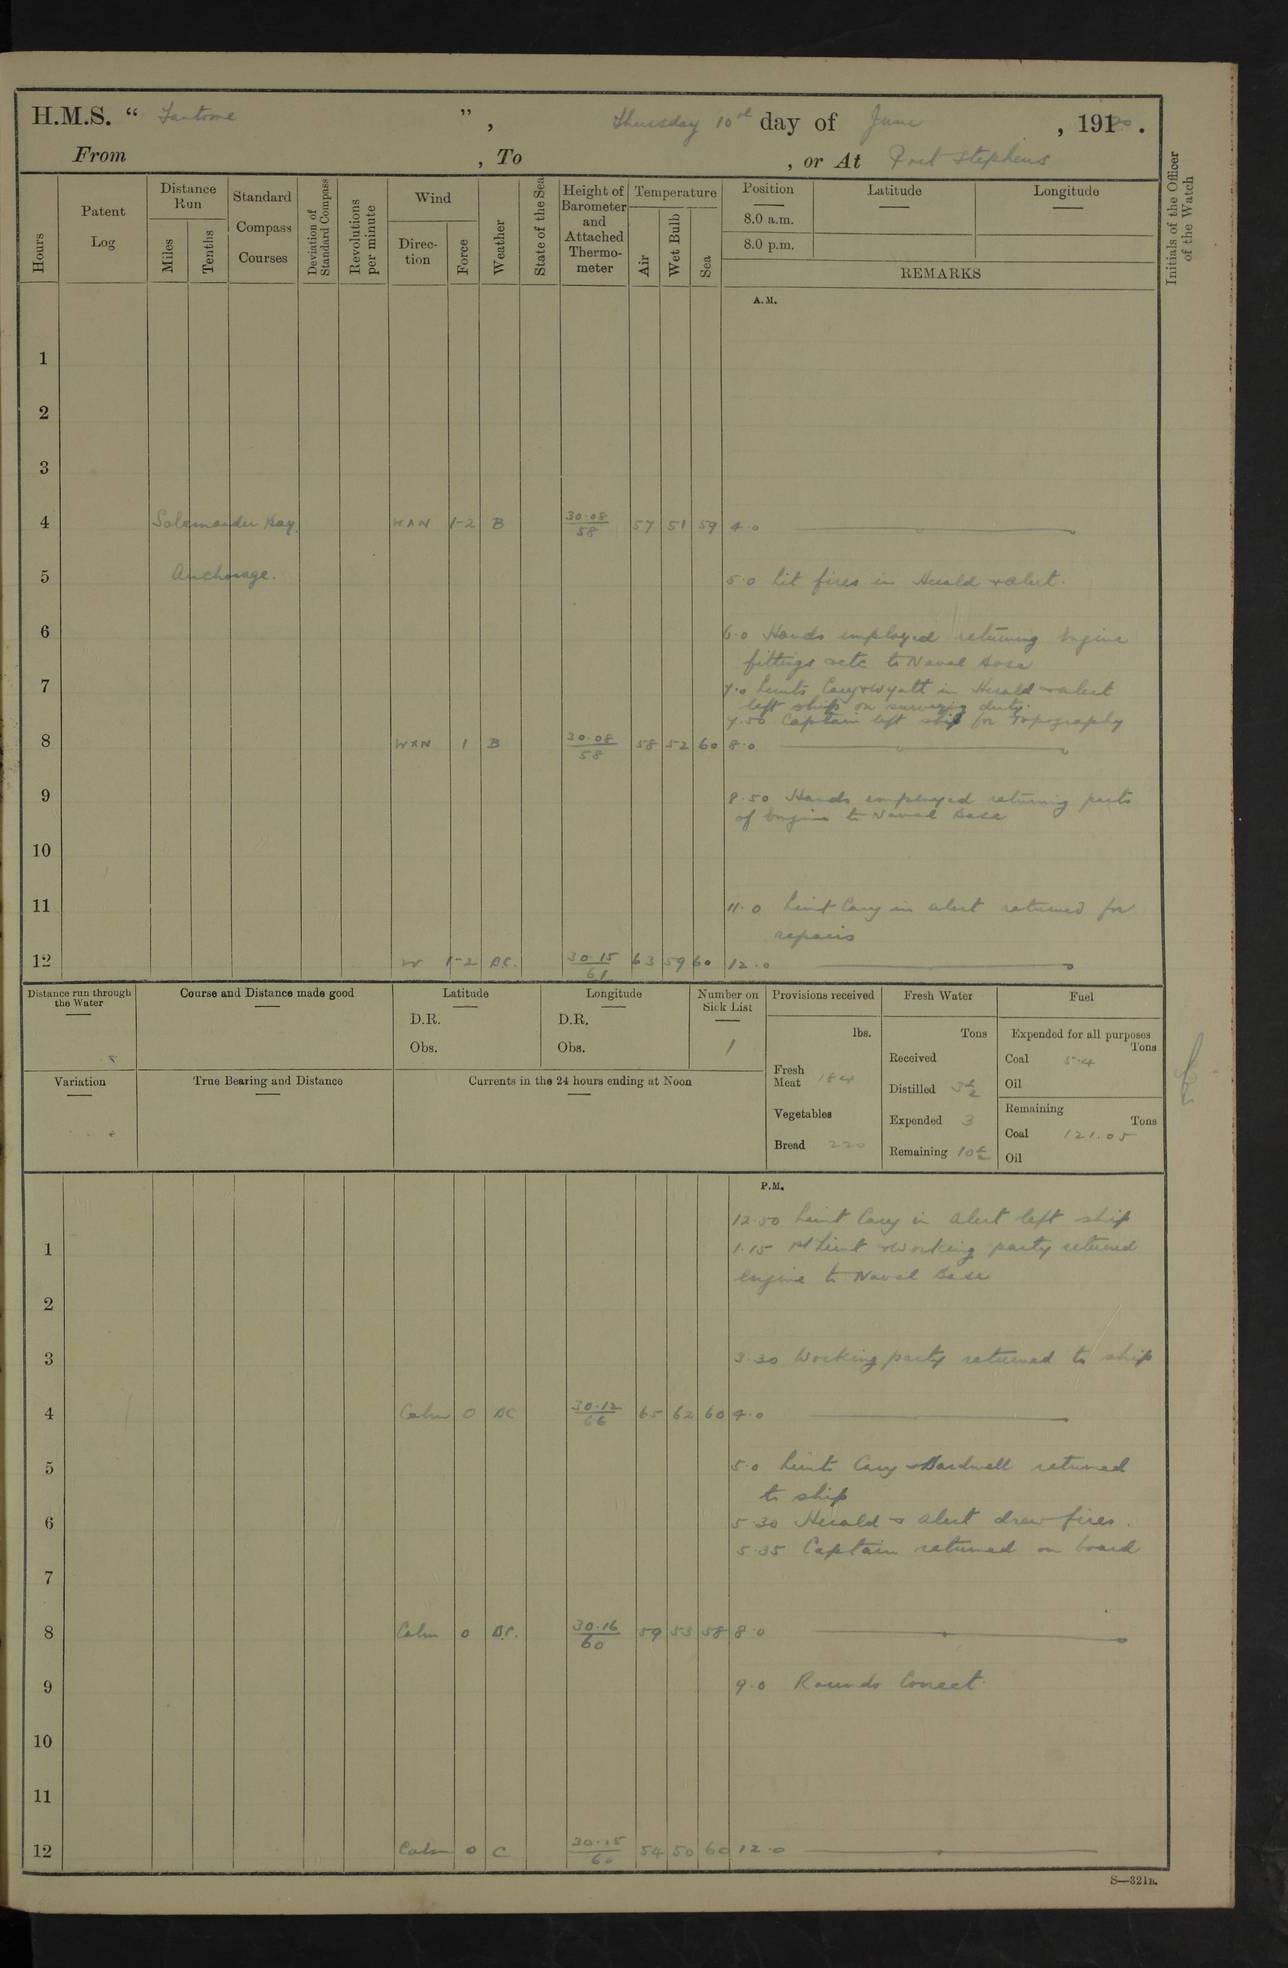 H.M.S. “ Fantome ”, Thursday 10th day of June, 1920.
From , To , or At Port Stephens
Hours
Patent Log
Distance Run
Miles
Tenths
Standard Compass Courses
Deviation of Standard Compass
Revolutions per minute
Wind
Direction
Force
Weather
State of the Sea
Height of Barometer and Attached Thermometer
Temperature
Air
Wet Bulb
Sea
Position
8.0 a.m.
8.0 p.m.
Latitude
Longitude
REMARKS
Initials of the Officer of the Watch
A.M.
1
2
3
4 Salamander Bay. WXN 1-2 B 30.08/58 57 51 59 4.0
5 Anchorage. 5.0 Lit fires in Herald & Alert.
6 6.0 Hands employed returning Engine
fittings etc to Naval Base
7 7.0 Lieuts Cary & Wyatt in Herald & Alert
left ship on surveying duty.
7.50 Captain left ship for Topography
8 WXN 1 B 30.08/58 58 52 60 8.0
9 8.50 Hands employed returning parts
of Engine to Naval Base
10
11 11.0 Lieut Cary in Alert returned for
repairs
12 W 1-2 BC. 30.15/61 63 59 60 12.0
Distance run through the Water
Course and Distance made good
Latitude
D.R.
Obs.
Longitude
D.R.
Obs.
Number on Sick List
1
Variation
True Bearing and Distance
Currents in the 24 hours ending at Noon
Provisions received
lbs.
Fresh Meat 184
Vegetables
Bread 220
Fresh Water
Tons
Received
Distilled 3½
Expended 3
Remaining 10½
Fuel
Expended for all purposes
Tons
Coal 5.4
Oil
Remaining
Tons
Coal 121.05
Oil
P.M.
12.50 Lieut Cary in Alert left ship
1 1.15 Lieut & Working party returned
Engine to Naval Base
2
3 3.30 Working party returned to ship
4 Calm 0 BC 30.12/66 65 62 60 4.0
5 5.0 Lieuts Cary & Bardwell returned
to ship
6 5.30 Herald & Alert drew fires.
5.35 Captain returned on board
7
8 Calm 0 BC. 30.16/60 59 53 58 8.0
9 9.0 Rounds Correct.
10
11
12 Calm 0 C 30.15/60 54 50 60 12.0
S—321B.